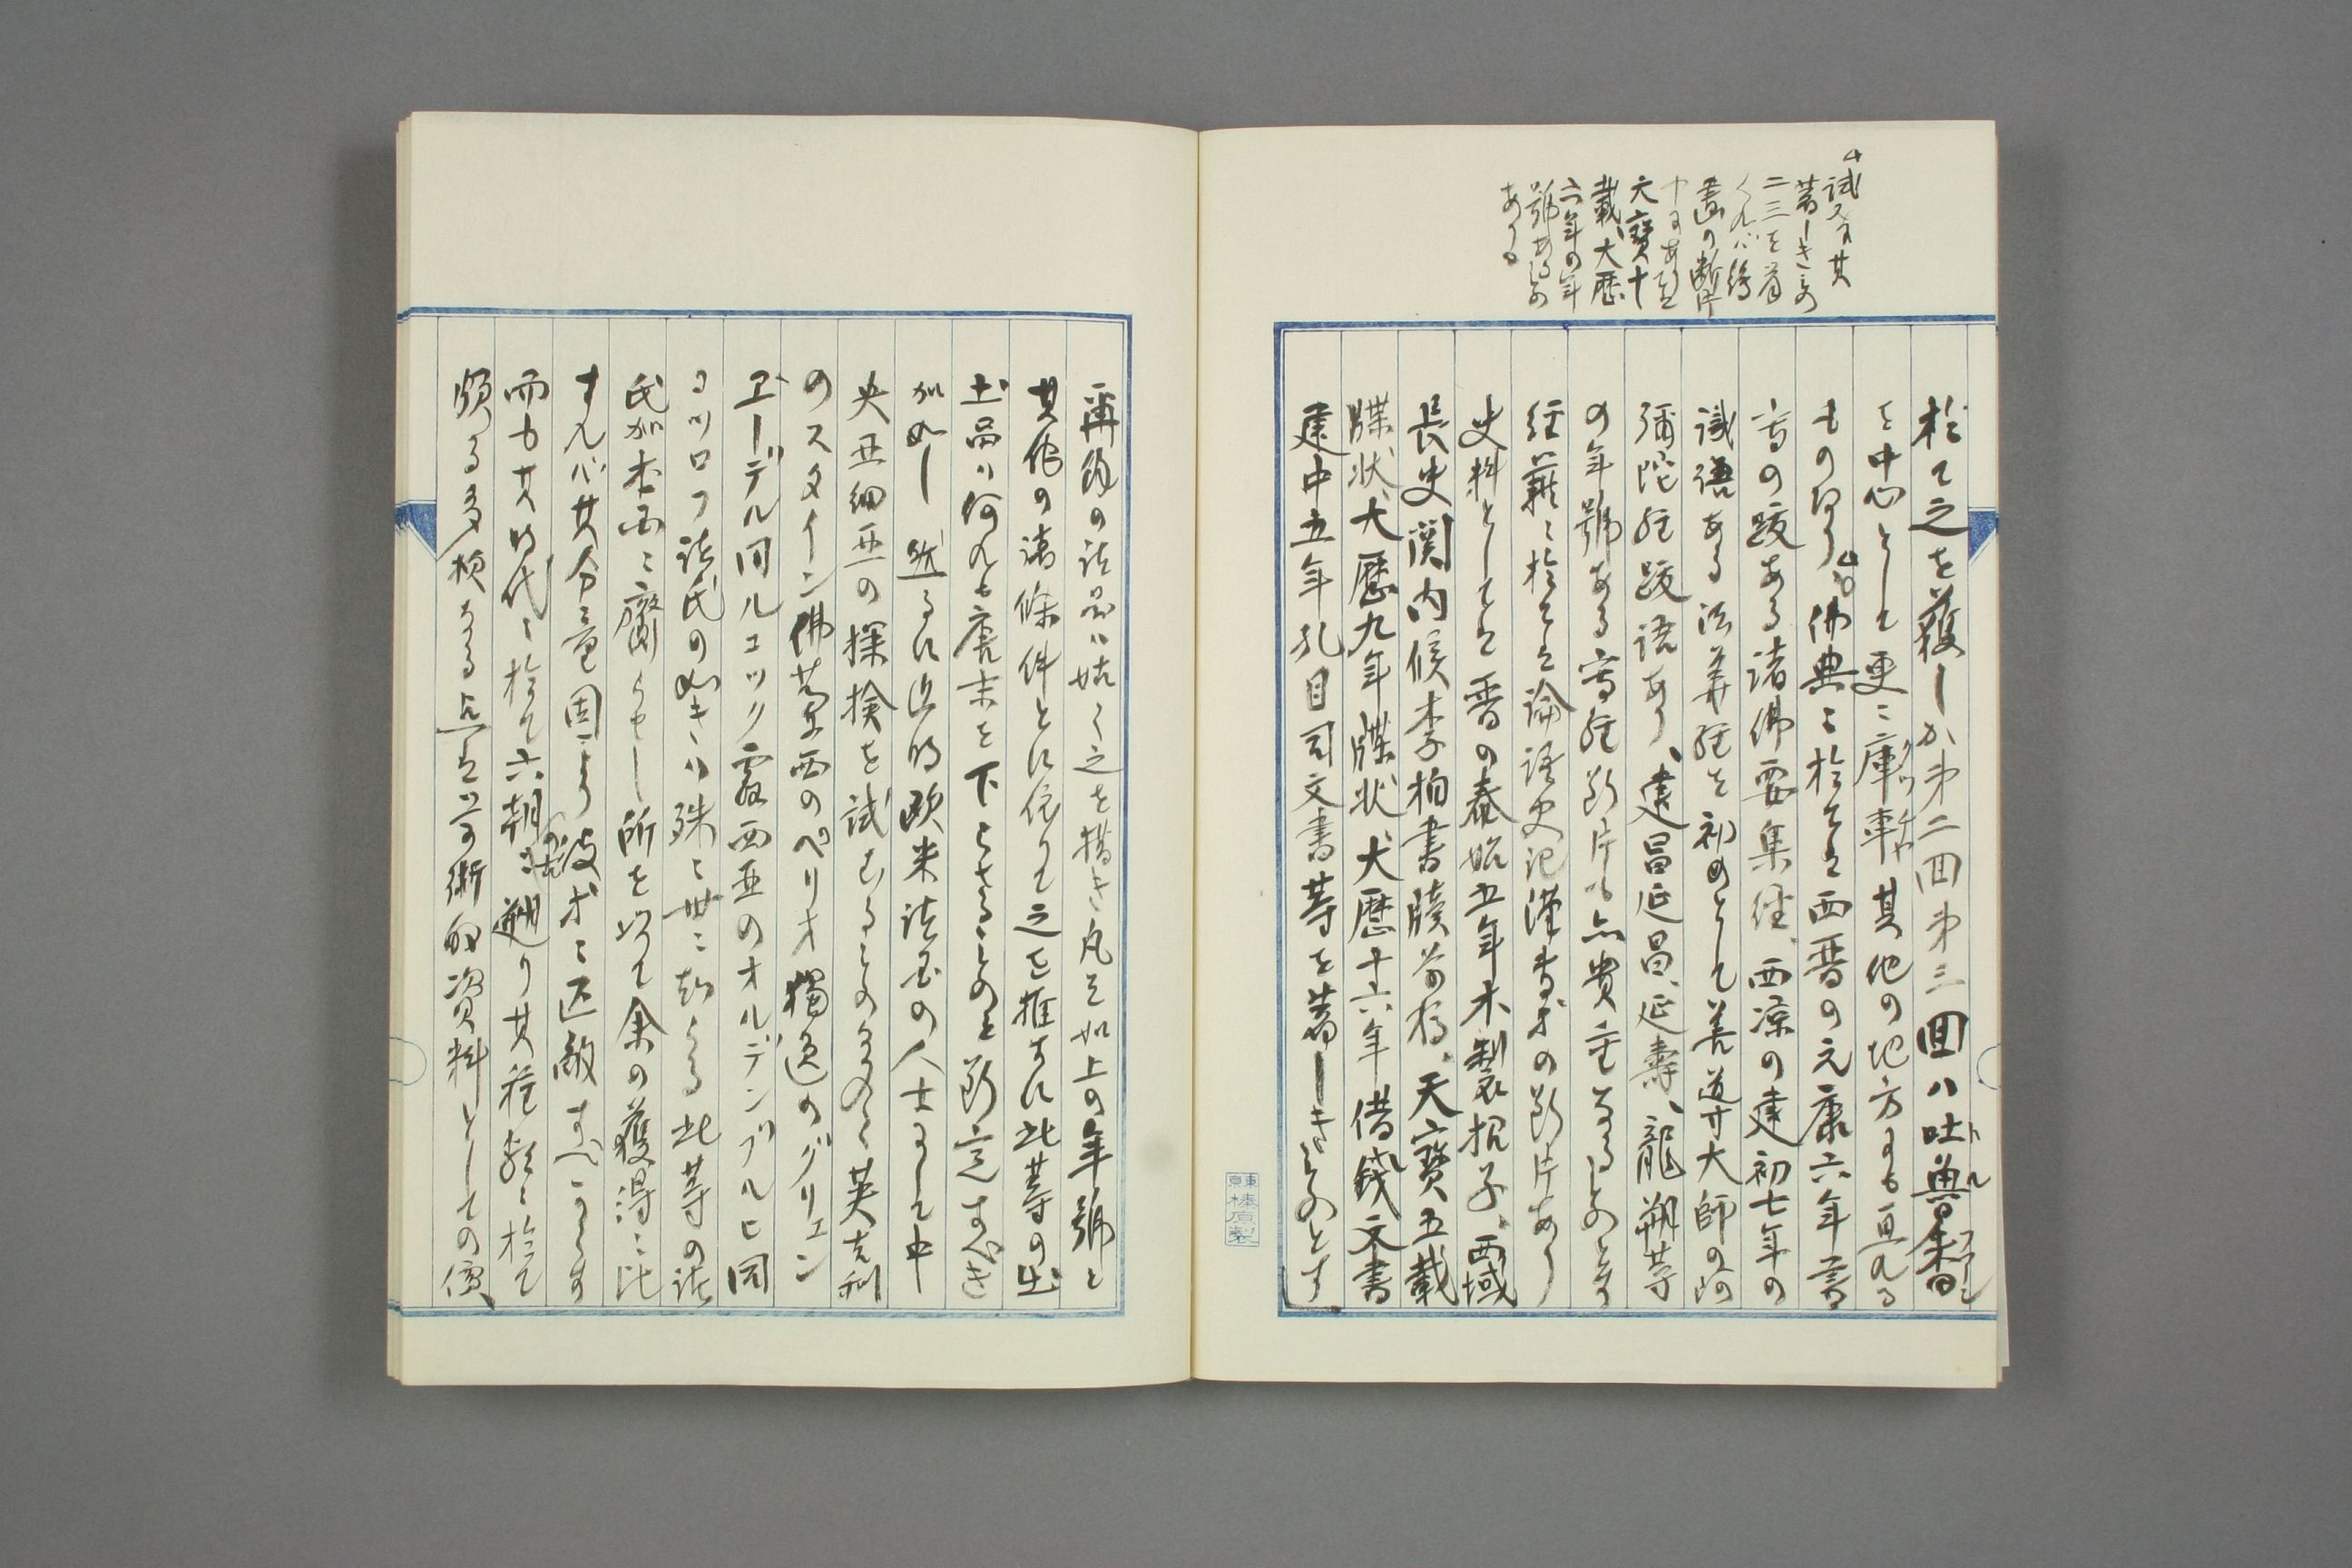 試ニ其
著しきもの
二三を首
くれバ繪
畫の断片
中にある
天寶十
載、大歴
六年の年
號あるもの
あり。
於て之を獲しか第二回第三回ハ吐魯番
を中心として更ニ庫車其他の地方にも亘れる
ものなり。佛典ニ於てハ西晋の元康六年書
寫の跋ある諸佛要集経、西涼の建初七年の
識語ある法華経を初めとして善導大師の阿
彌陀経跋語あり、建昌延昌、延壽、龍朔等
の年號ある寫経断片も亦貴重なるものとす
経籍ニ於ては論語史記漢書等の断片あり
史料としてハ晋の泰始五年木製招子、西域
長史関内侯李柏書牘前稿、天寶五載
牒状大歴九年牒状大歴十六年借錢文書
建中五年孔目司文書等を著しきものとす
再余の諸品ハ姑く之を措き凡そ如上の年號と
其他の諸條件とに依りて之を推すに此等の出
土品ハ何れも唐末を下らさるものと断定すべき
か如し 然るに近時欧米諸國の人士にして中
央亜細亜の探検を試むるもの多く英吉利
のスタイン佛蘭西のペリオ獨逸のグリュン
ヱーデル同ルコック露西亜のオルデンブルヒ同
コツロフ諸氏の如きハ殊に世ニ知らる此等の諸
氏か本國ニ齎らせし所を以て余の獲得ニ比
すれバ其分量固より彼等ニ匹敵すべからす
而も其時代ニ於て六朝ニ遡り其種類ニ於て
頗る多様なる点は学術的資料としての價
東京榛原製